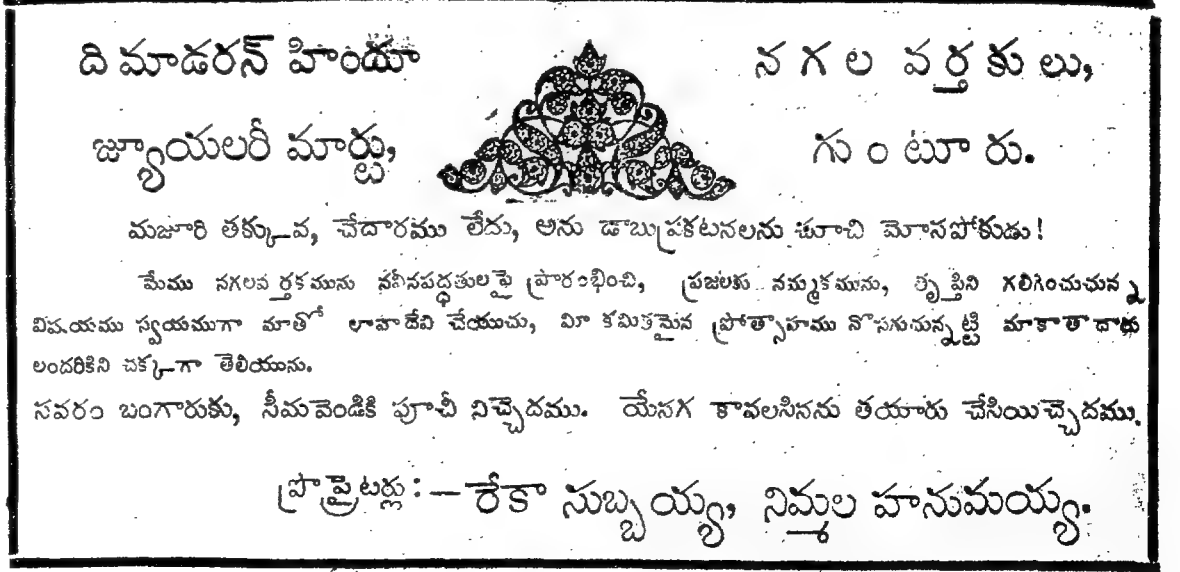 ది మాడరన్ హిందూ
జ్యూయలరీ మార్టు,
నగల వర్తకులు,
గుంటూరు.
మజూరి తక్కువ, చేదారము లేదు, అను డాబుప్రకటనలను చూచి మోసపోకుడు!
మేము నగలవర్తకమును నవీనపద్ధతులపై ప్రారంభించి, ప్రజలకు నమ్మకమును, తృప్తిని గలిగించుచున్న
విషయము స్వయముగా మాతో లావాదేవి చేయుచు, మీ కమితమైన ప్రోత్సాహము నొసగుచున్నట్టి మాఖాతాదారు
లందరికిని చక్కగా తెలియును.
సవరం బంగారుకు, సీమవెండికి పూచీ నిచ్చెదము. యేనగ కావలసినను తయారు చేసియిచ్చెదము.
ప్రొప్రైటర్లు :— రేకా సుబ్బయ్య, నిమ్మల హనుమయ్య.